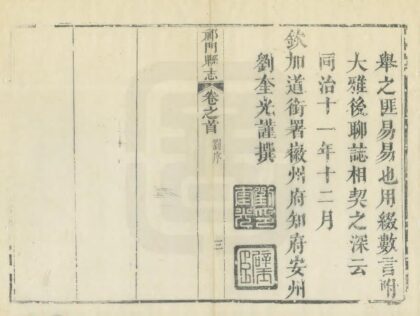 舉之匪易易也用綴數言附
大雅後聊誌相契之深云
同治十一年十二月
欽加道銜署徽州府知府安州
劉奎光謹撰
祁門縣志
卷之首
劉序
三